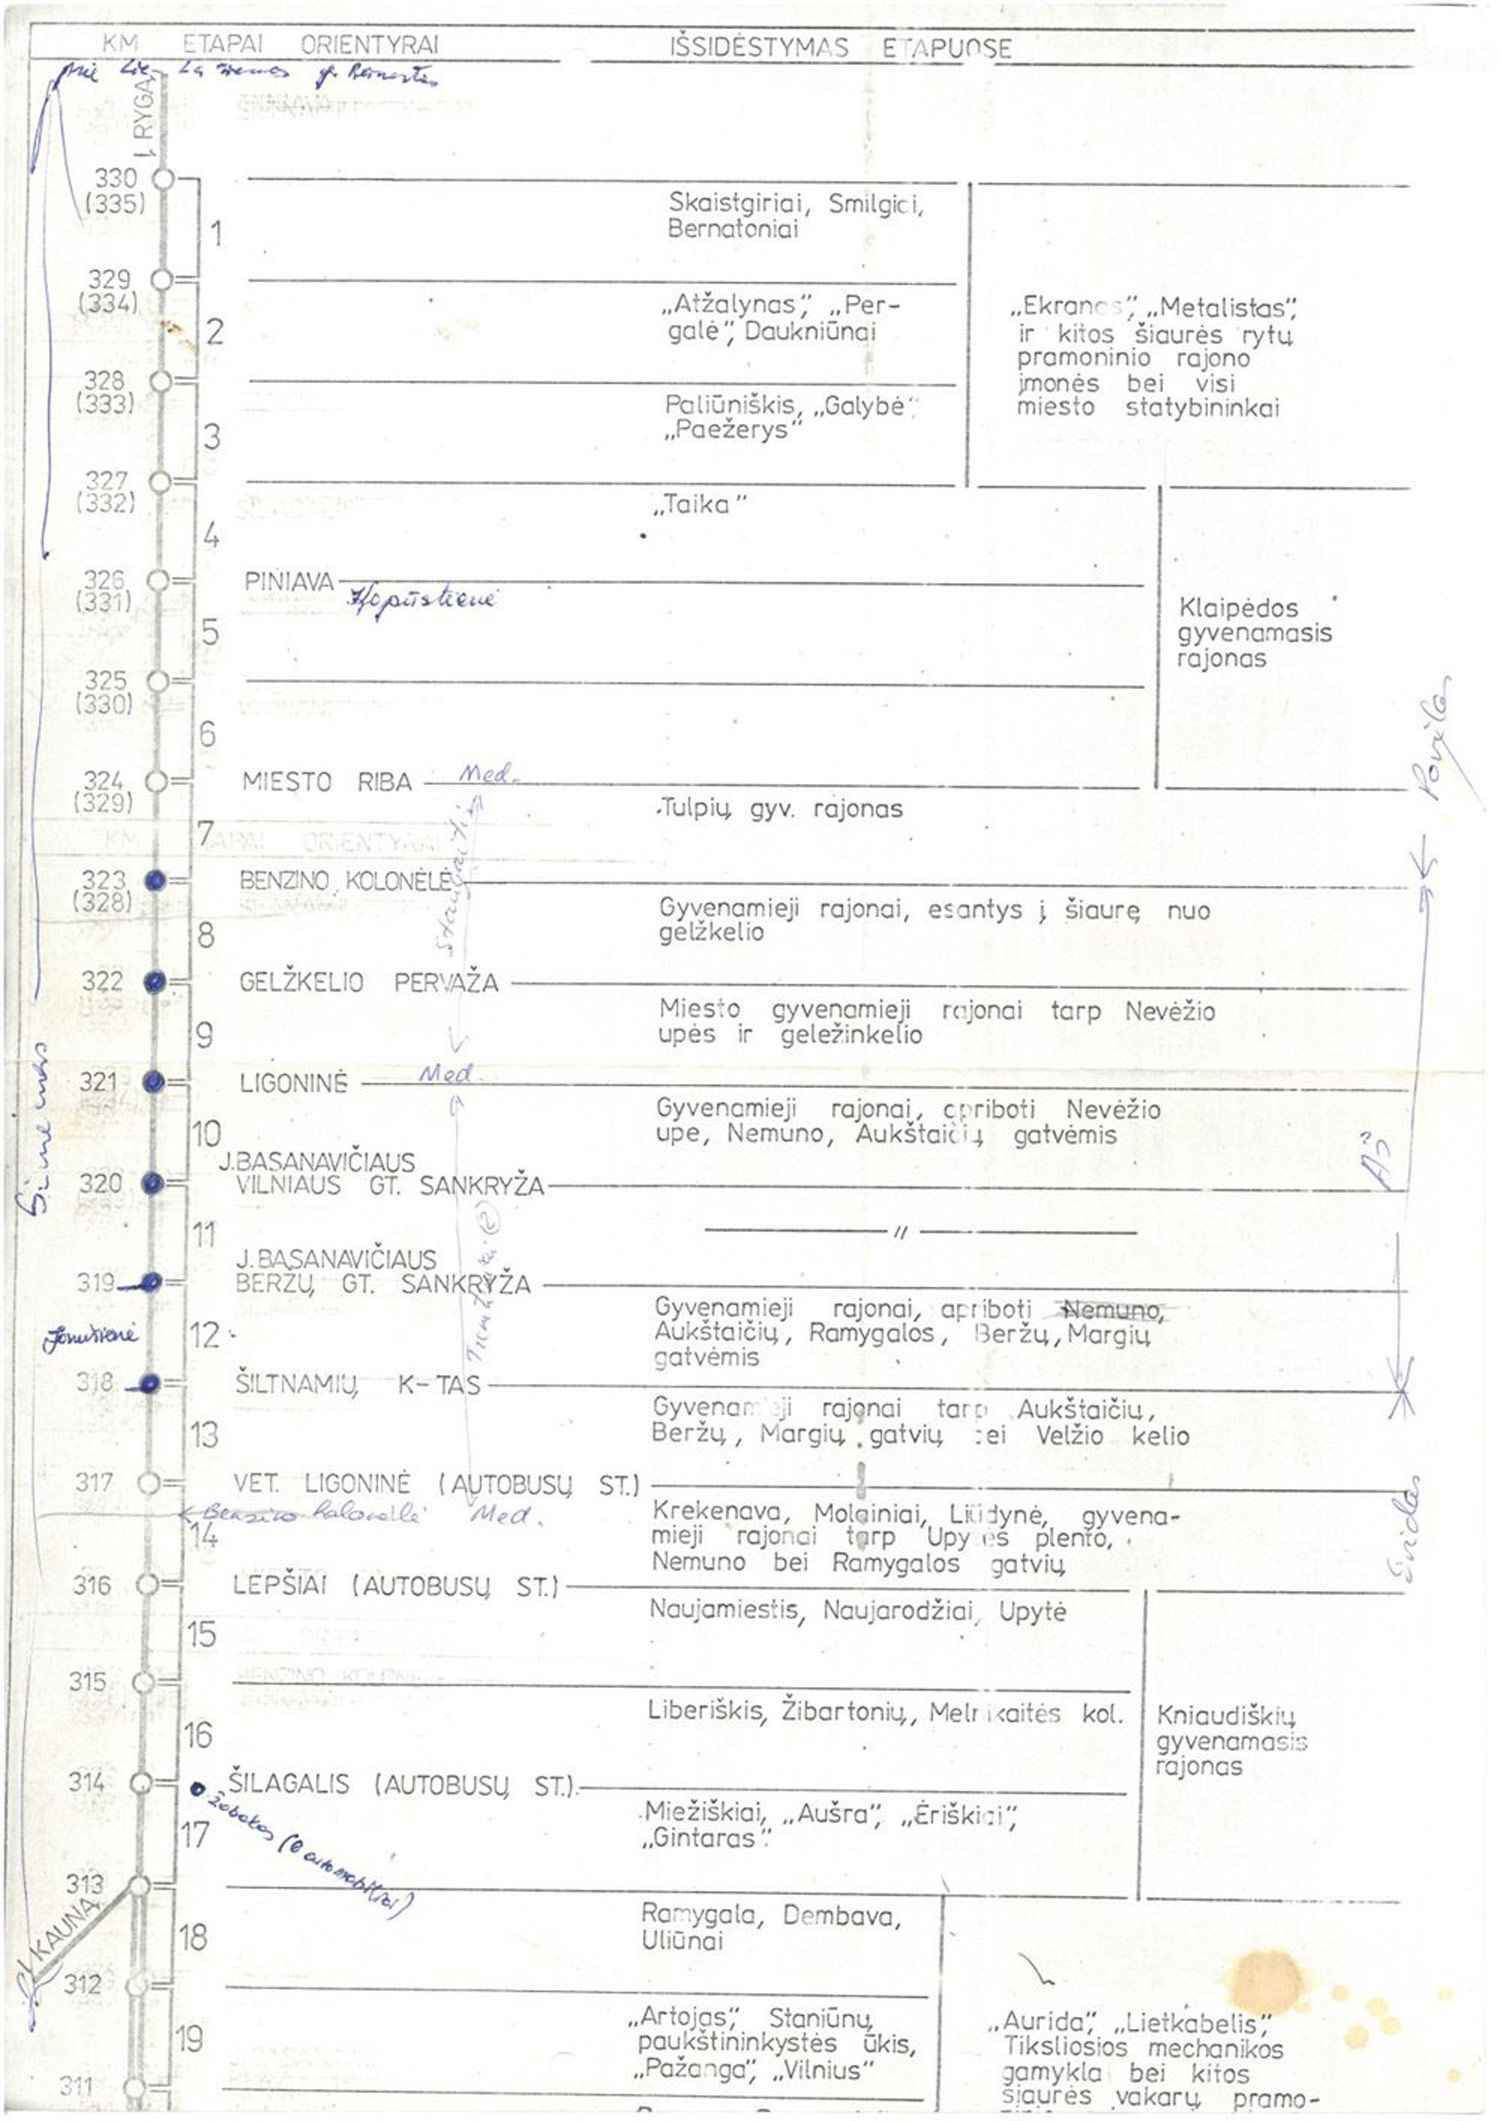 KM ETAPAI ORIENTYRAI IŠSIDĖSTYMAS ETAPUOSE
Į RYGĄ
330
(335)
1
Skaistgiriai, Smilgiai,
Bernatoniai
329
(334)
2
„Atžalynas”, „Per-
galė”, Daukniūnai
„Ekranas”, „Metalistas”,
ir kitos šiaurės rytų
pramoninio rajono
įmonės bei visi
miesto statybininkai
328
(333)
3
Paliūniškis, „Galybė”
„Paežerys”
327
(332)
4
„Taika”
326
(331)
PINIAVA
Kopūstienė
5
Klaipėdos
gyvenamasis
rajonas
325
(330)
6
Povilas
324
(329)
MIESTO RIBA Med.
7
Tulpių gyv. rajonas
KM ETAPAI ORIENTYRAI
323
(328)
BENZINO KOLONĖLĖ
8
Gyvenamieji rajonai, esantys į šiaurę nuo
gelžkelio
322
GELŽKELIO PERVAŽA
9
Miesto gyvenamieji rajonai tarp Nevėžio
upės ir geležinkelio
321
LIGONINĖ Med.
10
Gyvenamieji rajonai, apriboti Nevėžio
upe, Nemuno, Aukštaičių gatvėmis
Aš
320
J.BASANAVIČIAUS
VILNIAUS GT. SANKRYŽA
11
— 〃 —
319
J.BASANAVIČIAUS
BERŽŲ GT. SANKRYŽA
12
Gyvenamieji rajonai, apriboti Nemuno,
Aukštaičių, Ramygalos, Beržų, Margių
gatvėmis
318
ŠILTNAMIŲ K-TAS
13
Gyvenamieji rajonai tarp Aukštaičių,
Beržų, Margių gatvių bei Velžio kelio
317
VET. LIGONINĖ (AUTOBUSŲ ST.)
Benzino kolonėlė Med.
14
Krekenava, Molainiai, Liūdynė, gyvena-
mieji rajonai tarp Upytės plento,
Nemuno bei Ramygalos gatvių
316
LEPŠIAI (AUTOBUSŲ ST.)
15
Naujamiestis, Naujarodžiai, Upytė
BENZINO KOLONĖ
315
16
Liberiškis, Žibartonių, Melnikaitės kol.
Kniaudiškių
gyvenamasis
rajonas
314
ŠILAGALIS (AUTOBUSŲ ST.)
17
Miežiškiai, „Aušra”, „Ėriškiai”,
„Gintaras”
313
Į KAUNĄ
18
Ramygala, Dembava,
Uliūnai
312
19
„Artojas”, Staniūnų
paukštininkystės ūkis,
„Pažanga”, „Vilnius”
„Aurida”, „Lietkabelis”,
Tiksliosios mechanikos
gamykla bei kitos
šiaurės vakarų pramo-
311